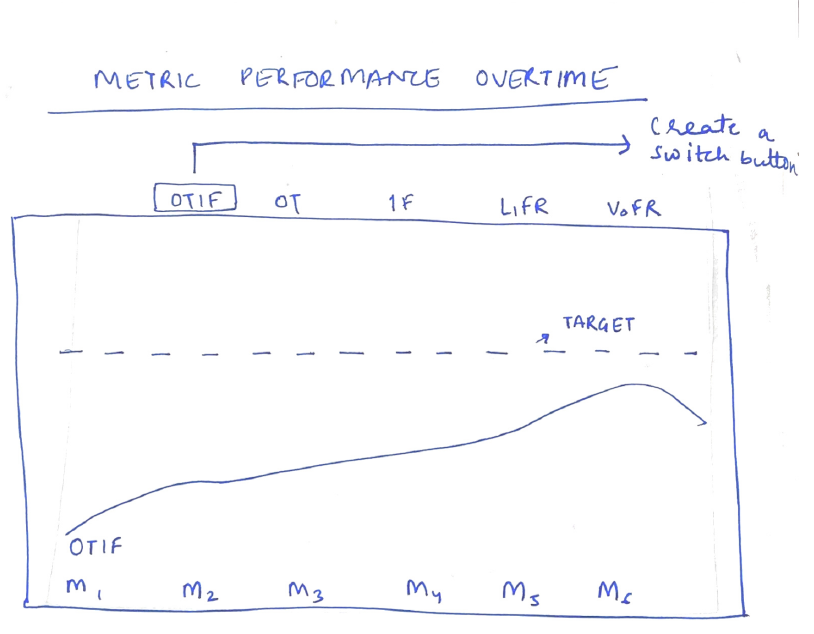 METRIC PERFORMANCE OVERTIME
Create a
switch button
OTIF OT IF LIFR VOFR
TARGET
OTIF
M1 M2 M3 M4 M5 M6